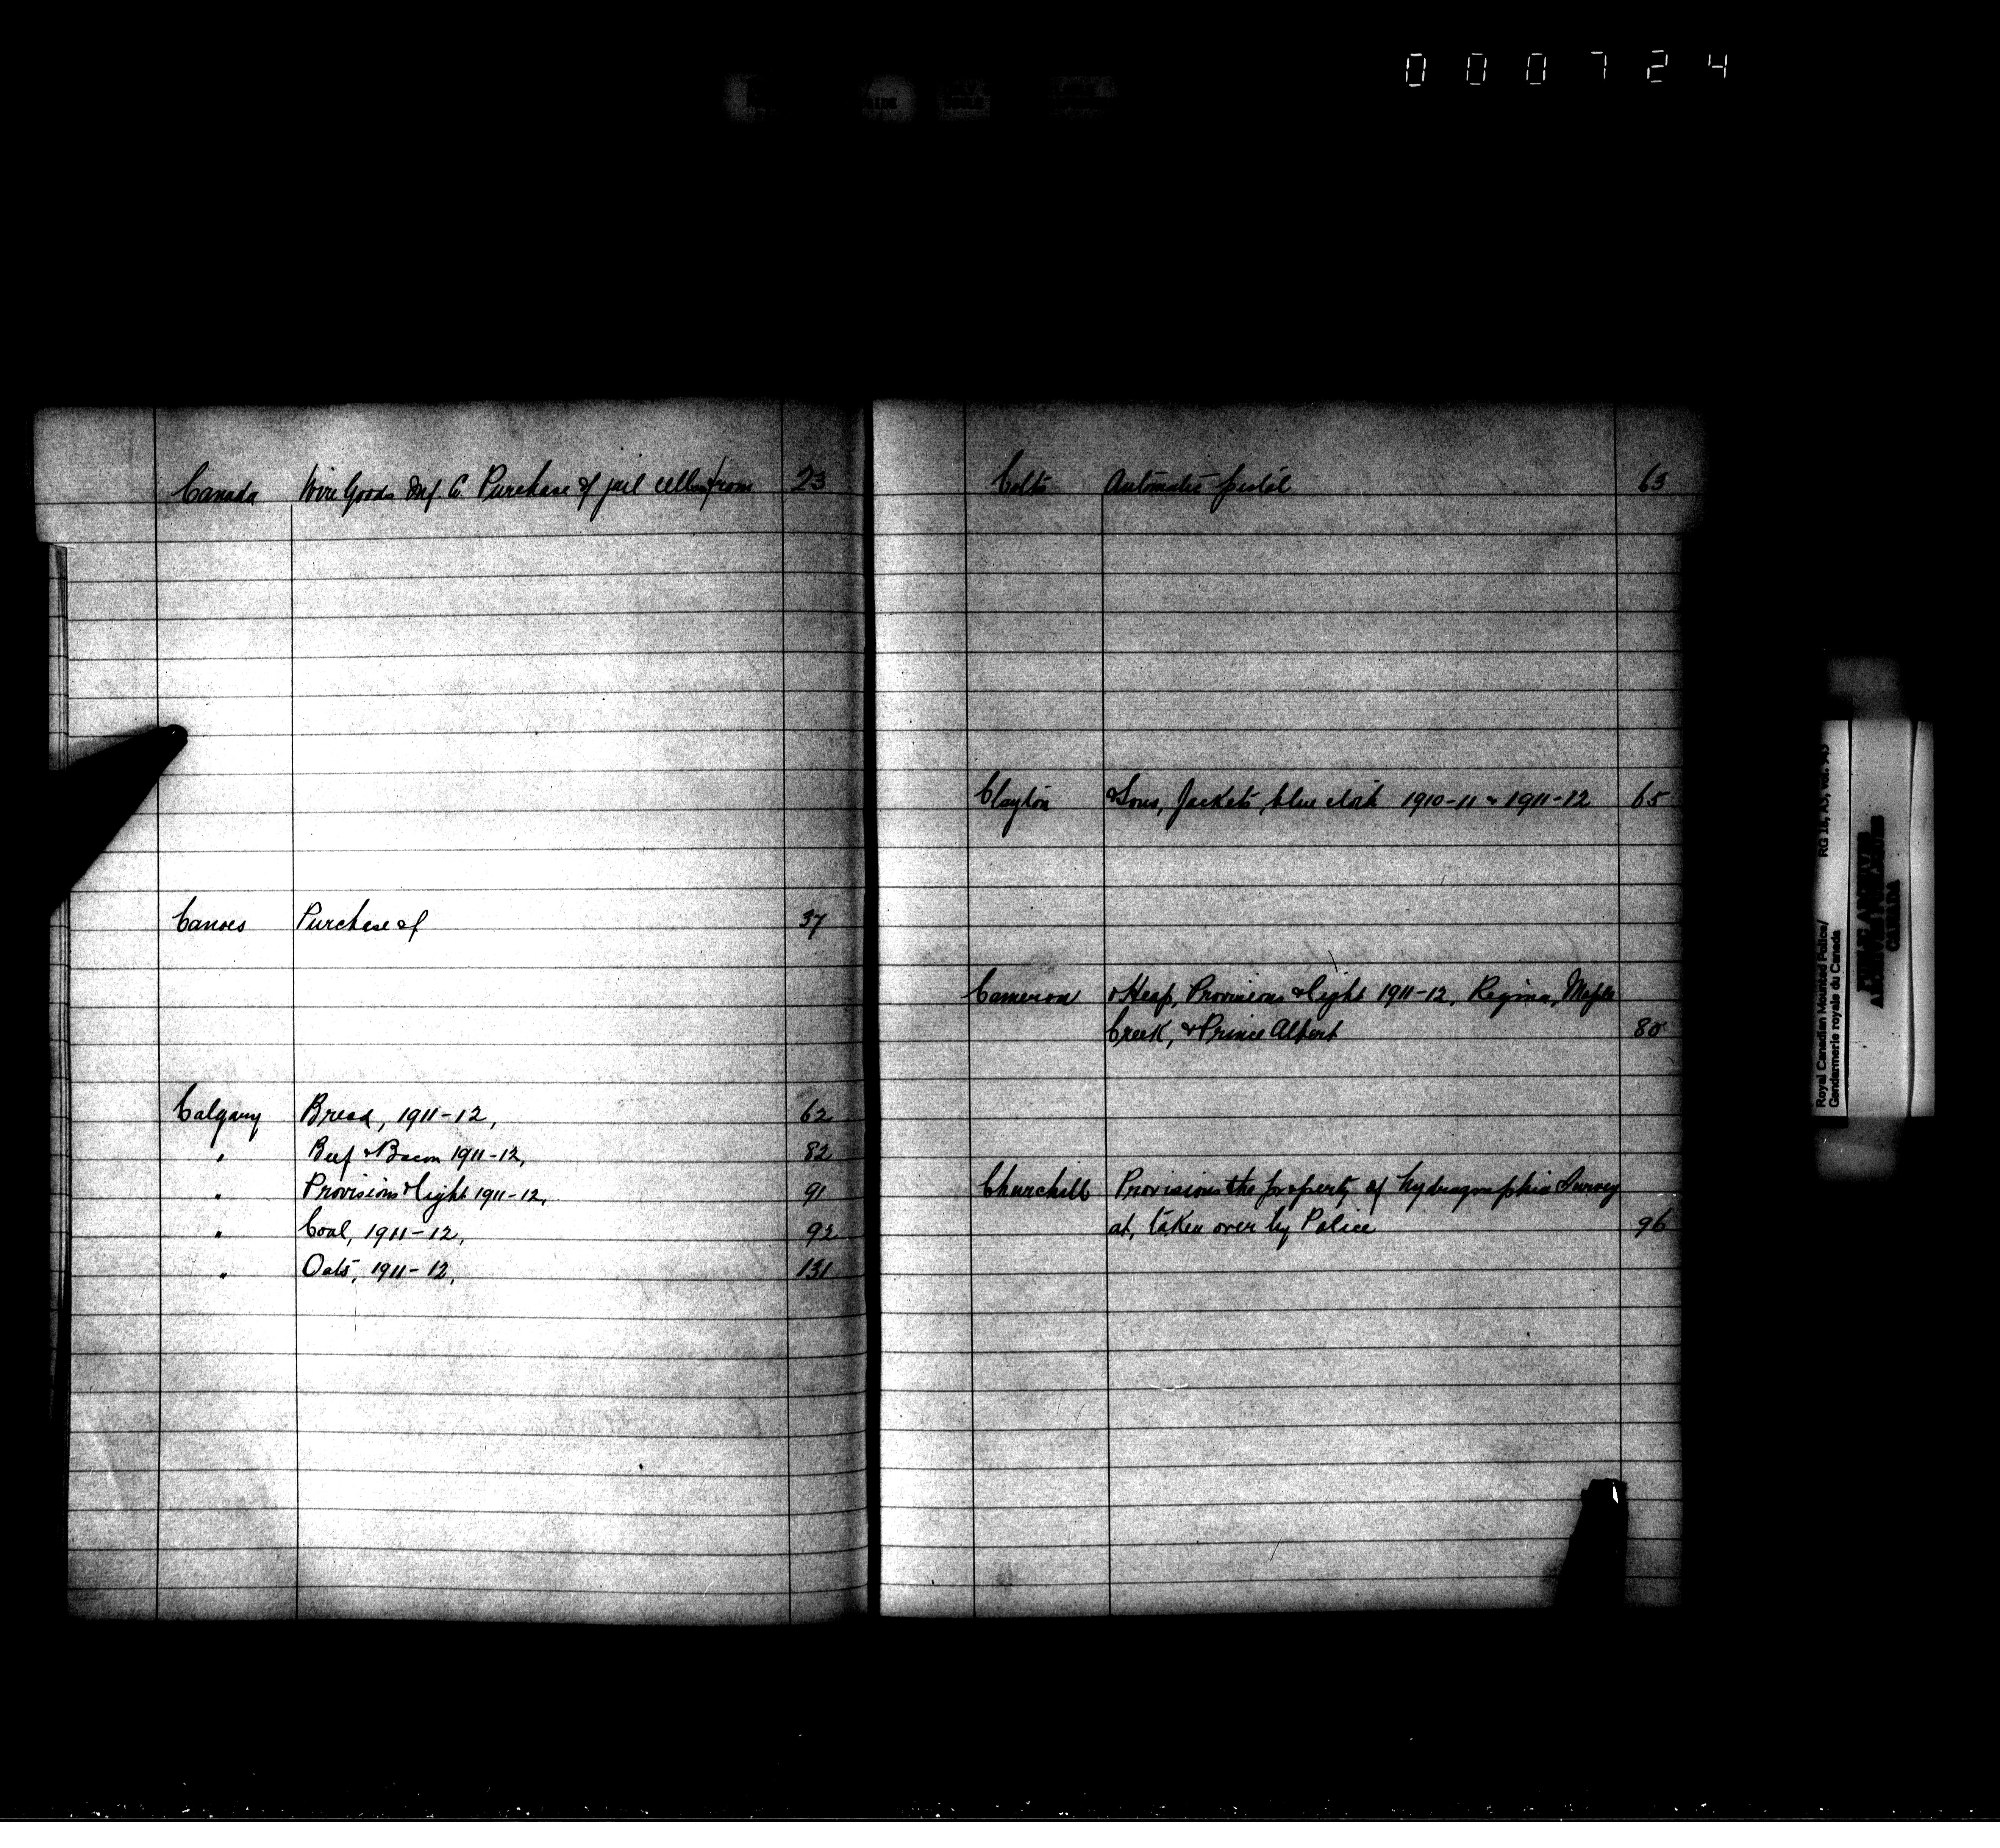 000724
Canada Wire Goods Mnf Co. Purchase of jail cells from 23
Canoes Purchase of 37
Calgary Bread, 1911-12, 62
" Beef & Bacon 1911-12, 82
" Provisions & light 1911-12, 91
" Coal, 1911-12, 92
" Oats, 1911-12, 131
Colts Automatic pistol 63
Clayton & Sons, Jackets blue cloth 1910-11 & 1911-12 65
Cameron & Heap, Provisions & light 1911-12, Regina, Maple
Creek, & Prince Albert 80
Churchill Provisions the property of hydrographic Survey
at, taken over by Police 96
Royal Canadian Mounted Police/
Gendarmerie royale du Canada
RG 18,
CANADA